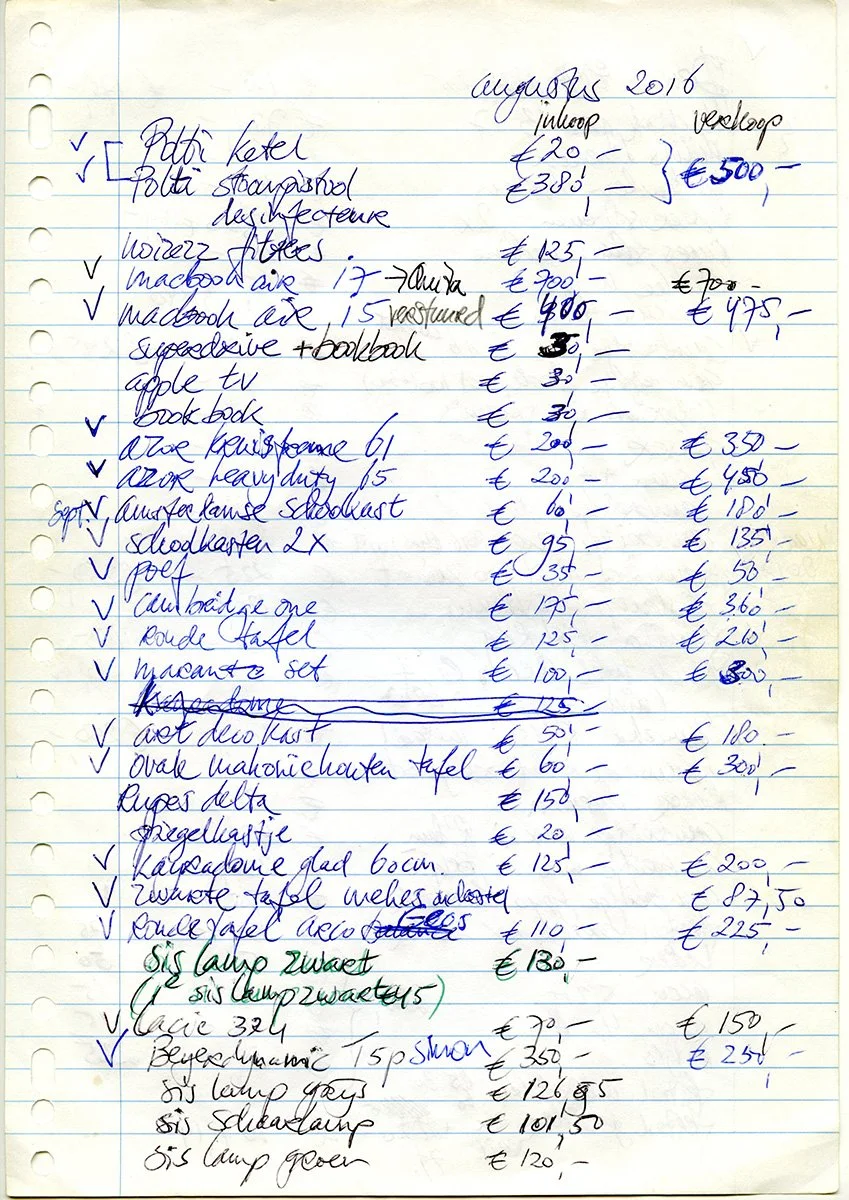 augustus 2016
inkoop verkoop
Polti ketel € 20,–
Polti stoompistool € 380,– € 500,–
desinfecteure
noizezz fitzees. € 125,–
macbook air 17 → Anita € 700,– € 700 –
macbook air 15 verstuurd € 400,– € 475,–
superdrive + bookbook € 30,–
apple tv € 30,–
bookbook € 30,–
azor kruisframe 61 € 200,– € 350,–
azor heavy duty 65 € 200,– € 450,–
Sept. Amsterdamse schoolkast € 60,– € 180,–
schoolkasten 2x € 95,– € 135,–
poef € 35,– € 50,–
Cambridge one € 175,– € 360,–
ronde tafel € 125,– € 210,–
marantz set € 100,– € 300,–
Kaisedome € 125,–
art deco kast € 50,– € 180 –
Ovale mahoniehouten tafel € 60,– € 300,–
Rupes delta € 150,–
spiegelkastje € 20,–
Kaiserdome glad 60cm. € 125,– € 200,–
zwarte tafel € 87,50
Ronde tafel arco Geos € 110,– € 225,–
sis lamp zwart € 130,–
(1e sis lamp zwart €45)
Lacie 324 € 70,– € 150,–
Beyerdynamic T5p simon € 350,– € 250,–
sis lamp grijs € 126,95
sis Schaarlamp € 101,50
sis lamp groen € 120,–